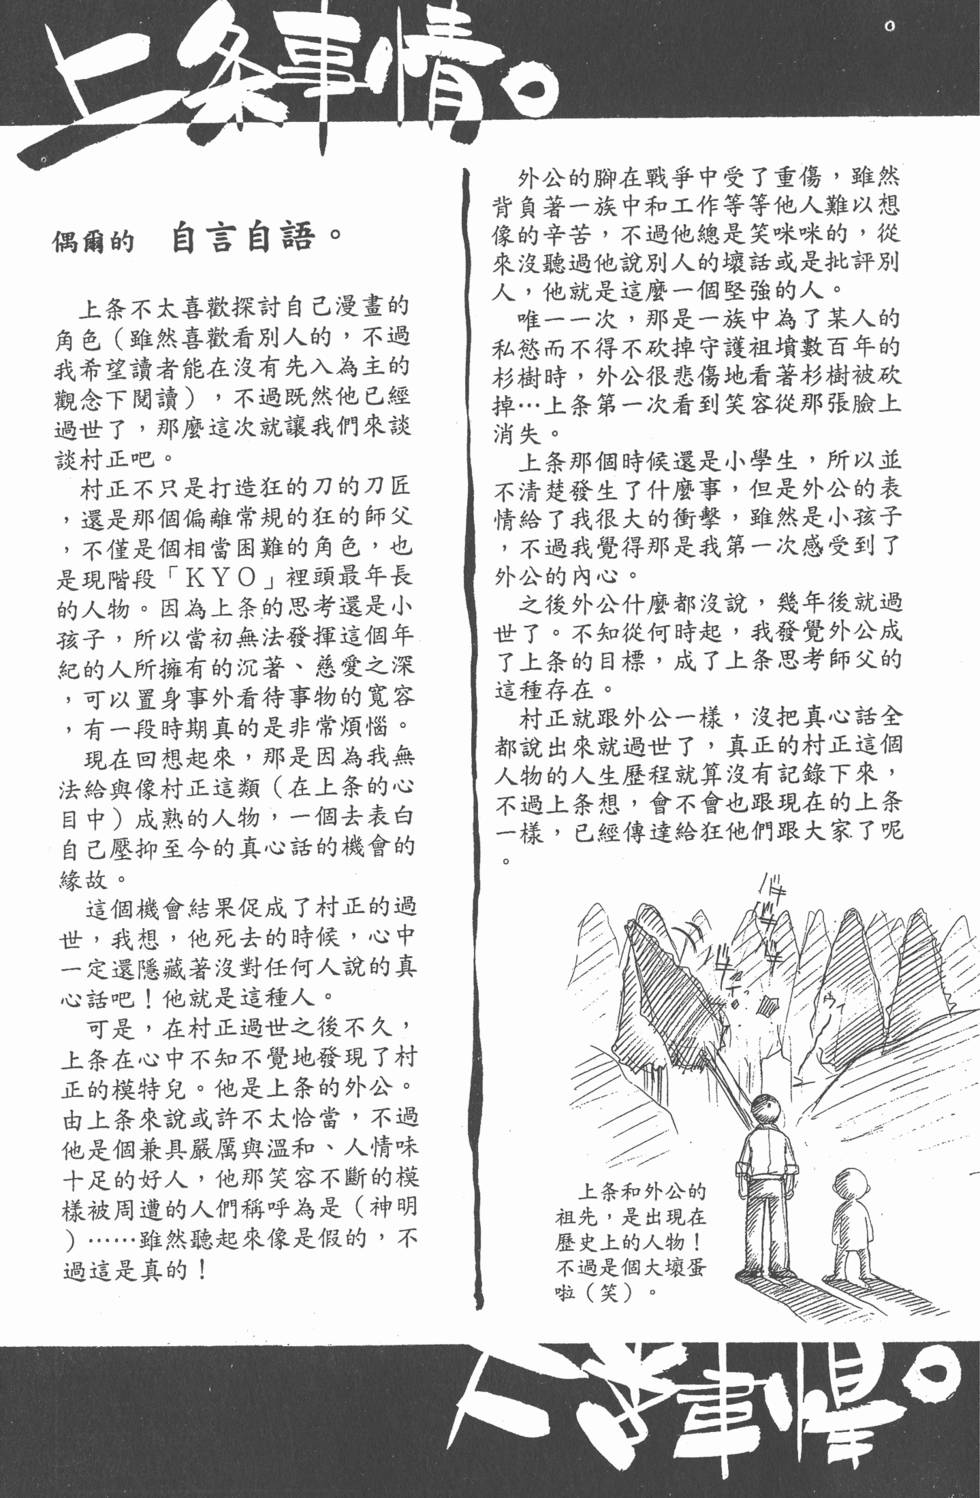 上条事情。
偶爾的 自言自語。
上条不太喜歡探討自己漫畫的
角色（雖然喜歡看別人的，不過
我希望讀者能在沒有先入為主的
觀念下閱讀），不過既然他已經
過世了，那麼這次就讓我們來談
談村正吧。
村正不只是打造狂的刀的刀匠
，還是那個偏離常規的狂的師父
，不僅是個相當困難的角色，也
是現階段「ＫＹＯ」裡頭最年長
的人物。因為上条的思考還是小
孩子，所以當初無法發揮這個年
紀的人所擁有的沉著、慈愛之深
，可以置身事外看待事物的寬容
，有一段時期真的是非常煩惱。
現在回想起來，那是因為我無
法給與像村正這類（在上条的心
目中）成熟的人物，一個去表白
自己壓抑至今的真心話的機會的
緣故。
這個機會結果促成了村正的過
世，我想，他死去的時候，心中
一定還隱藏著沒對任何人說的真
心話吧！他就是這種人。
可是，在村正過世之後不久，
上条在心中不知不覺地發現了村
正的模特兒。他是上条的外公。
由上条來說或許不太恰當，不過
他是個兼具嚴厲與溫和、人情味
十足的好人，他那笑容不斷的模
樣被周遭的人們稱呼為是（神明
）……雖然聽起來像是假的，不
過這是真的！
外公的腳在戰爭中受了重傷，雖然
背負著一族中和工作等等他人難以想
像的辛苦，不過他總是笑咪咪的，從
來沒聽過他說別人的壞話或是批評別
人，他就是這麼一個堅強的人。
唯一一次，那是一族中為了某人的
私慾而不得不砍掉守護祖墳數百年的
杉樹時，外公很悲傷地看著杉樹被砍
掉…上条第一次看到笑容從那張臉上
消失。
上条那個時候還是小學生，所以並
不清楚發生了什麼事，但是外公的表
情給了我很大的衝擊，雖然是小孩子
，不過我覺得那是我第一次感受到了
外公的內心。
之後外公什麼都沒說，幾年後就過
世了。不知從何時起，我發覺外公成
了上条的目標，成了上条思考師父的
這種存在。
村正就跟外公一樣，沒把真心話全
都說出來就過世了，真正的村正這個
人物的人生歷程就算沒有記錄下來，
不過上条想，會不會也跟現在的上条
一樣，已經傳達給狂他們跟大家了呢
。
上条和外公的
祖先，是出現在
歷史上的人物！
不過是個大壞蛋
啦（笑）。